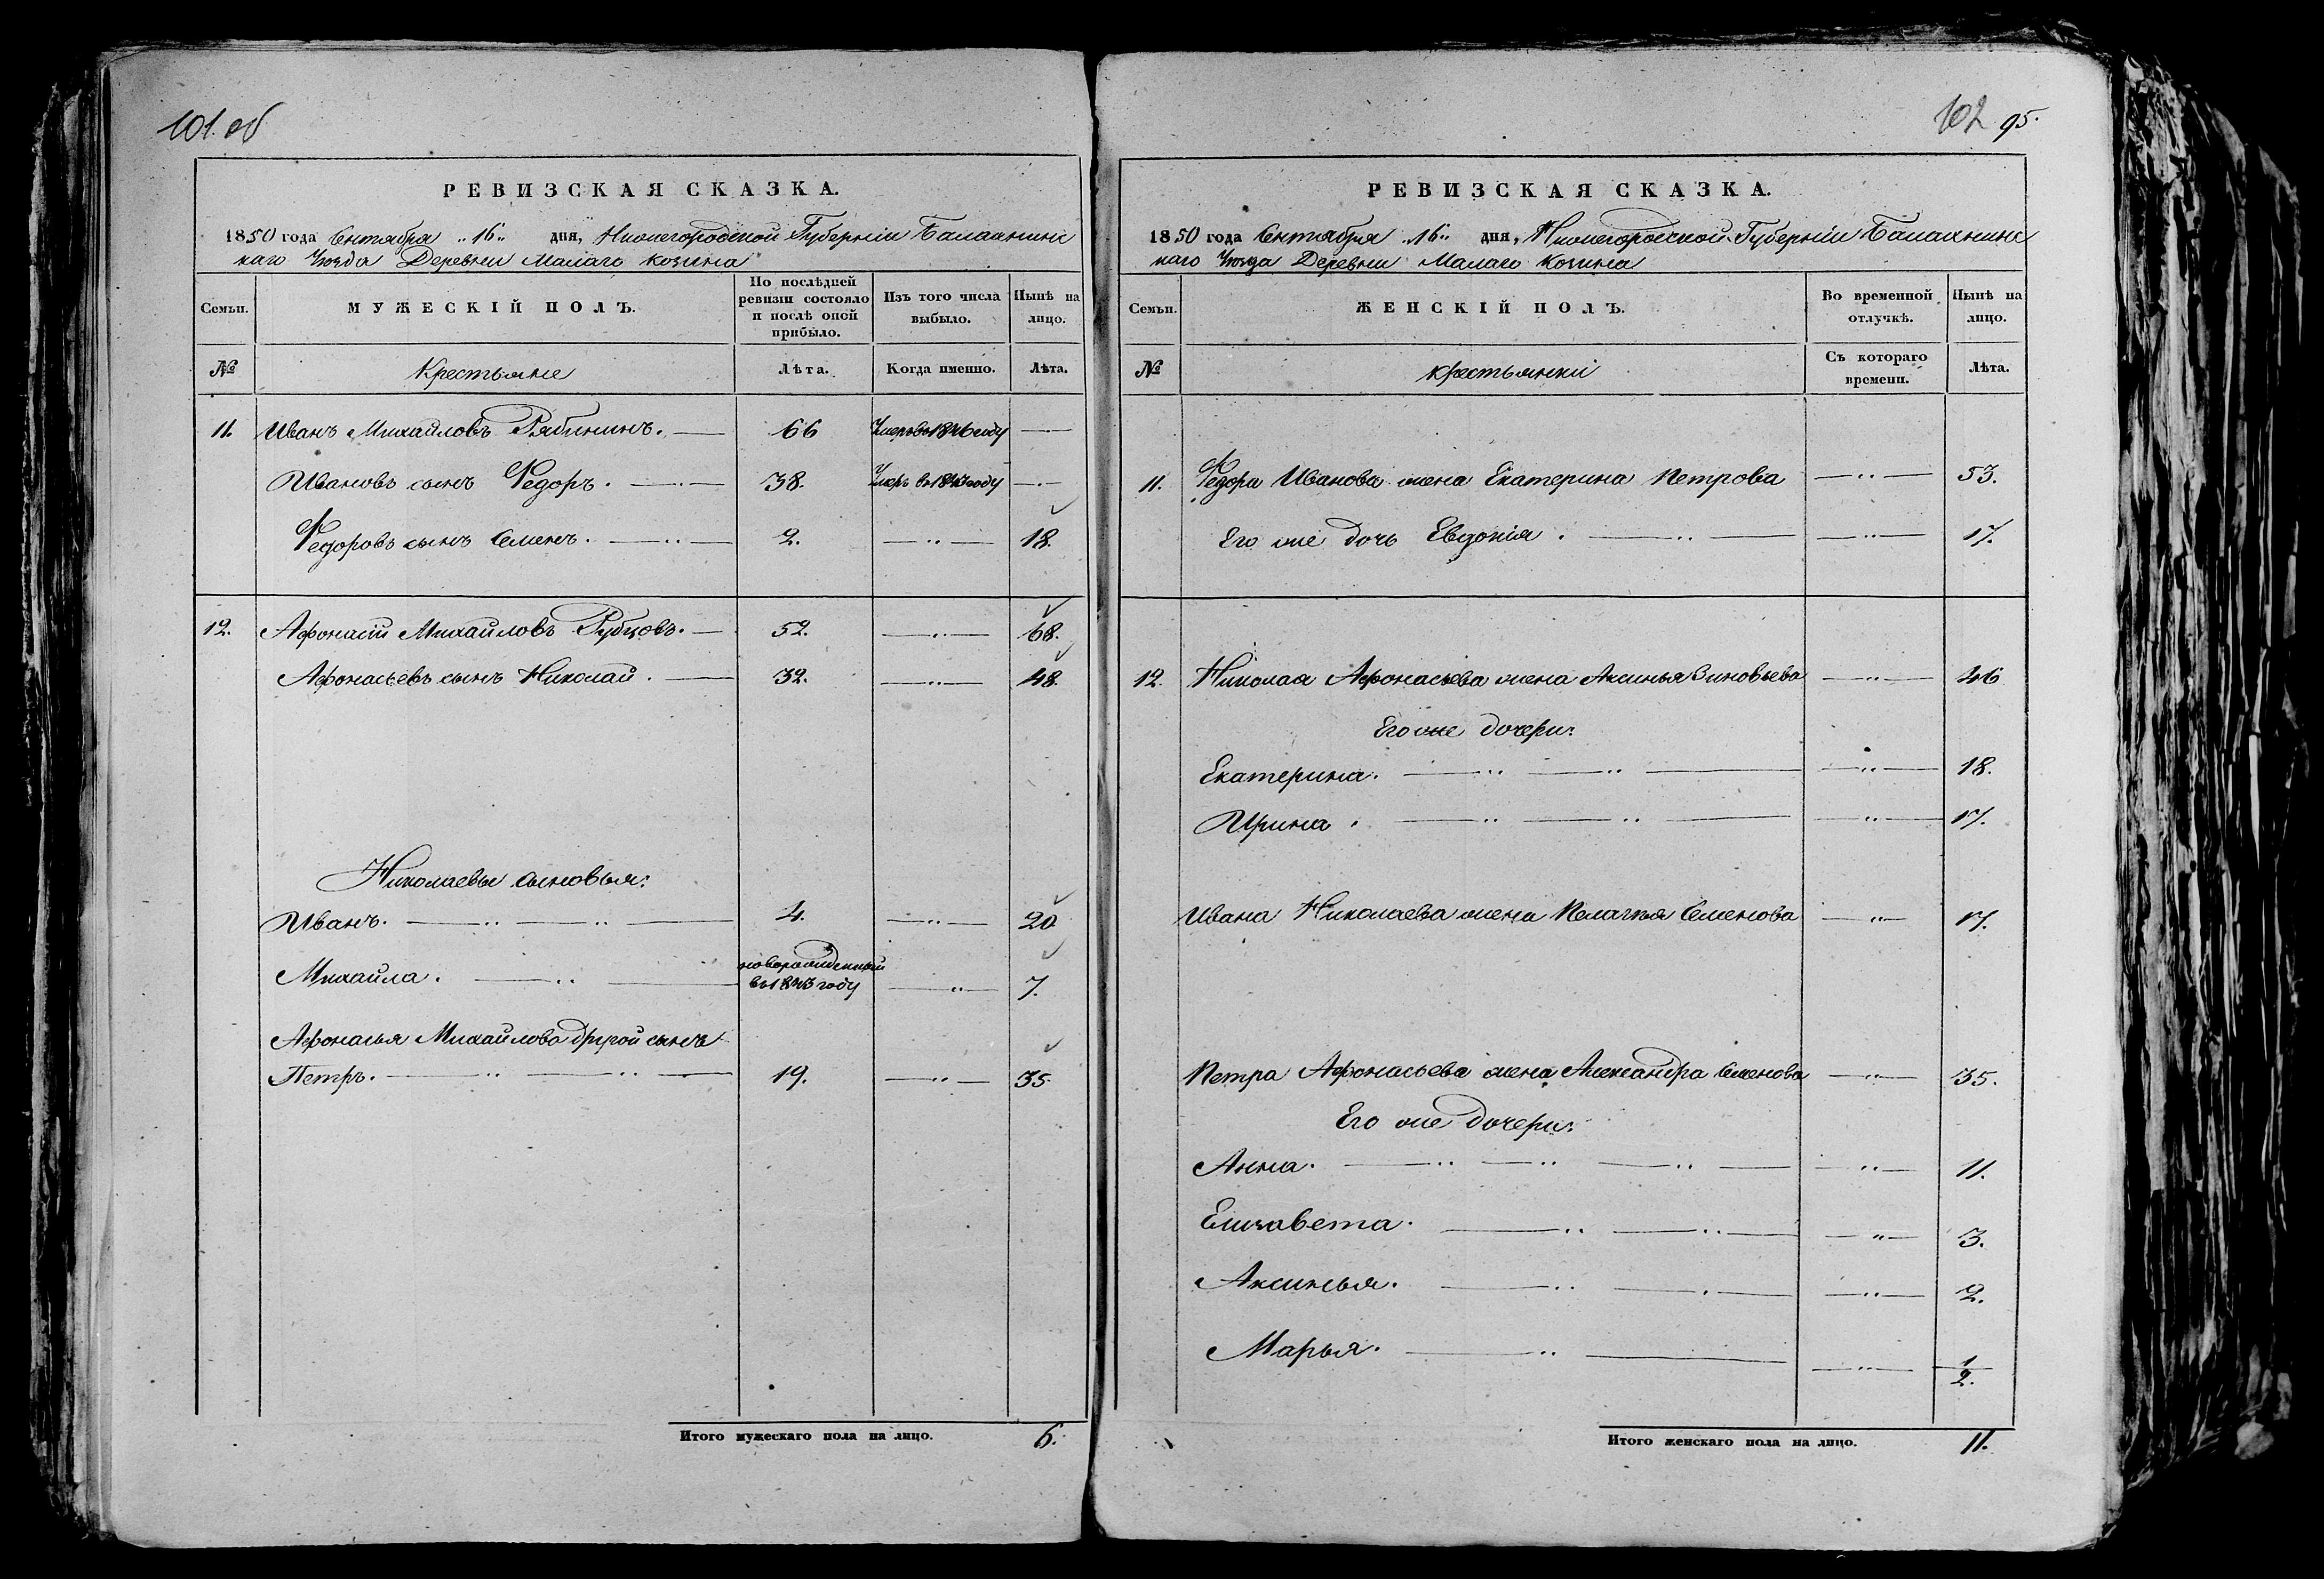 101. об
РЕВИЗСКАЯ СКАЗКА.
1850 года Сентября „16„ дня, Нижегородской Губерніи Балахнинс
каго Уѣзда Деревни Малаго Козина
Семьи.
МУЖЕСКІЙ ПОЛЪ.
По послѣдней ревизіи состояло и послѣ оной прибыло.
Изъ того числа выбыло.
Нынѣ на лицо.
№
Крестьяне
Лѣта.
Когда именно.
Лѣта.
11. Иванъ Михайловъ Рябининъ. 66 Умеръ въ 1846 году
Ивановъ сынъ Федоръ. 38. Умеръ въ году
Федоровъ сынъ Семенъ. 2. 18.
12. Афонасій Михайловъ Рубцовъ. 52. 68.
Афонасьевъ сынъ Николай. 32. 48.
Николаевы сыновья:
Иванъ. 4. 20
Михайла. новорожденный въ 1843 году 7.
Афонасья Михайлова другой сынъ
Петръ. 19. 35.
Итого мужескаго пола на лицо. 6.
102 95.
РЕВИЗСКАЯ СКАЗКА.
1850 года Сентября „16„ дня, Нижегородской Губерніи Балахнинс
каго Уѣзда Деревни Малаго Козина
Семьи.
ЖЕНСКІЙ ПОЛЪ.
Во временной отлучкѣ.
Нынѣ на лицо.
№
крестьянки
Съ котораго времени.
Лѣта.
11. Федора Иванова жена Екатерина Петрова 53.
Его же дочь Евдокія. 17.
12. Николая Афонасьева жена Аксинья Зиновьева 46
Его же дочери:
Екатерина. 18.
Ирина. 17.
Ивана Николаева жена Пелагѣя Семенова 17.
Петра Афонасьева жена Александра Семенова 35.
Его же дочери:
Анна. 11.
Елизавета. 3.
Аксинья. 2.
Марья. 1/2.
Итого женскаго пола на лицо. 11.